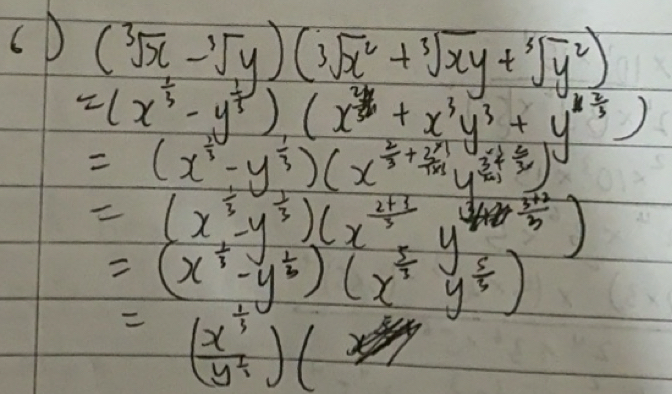 6) (³√x - ³√y)(³√x² + ³√xy + ³√y²)
= (x^{1/3} - y^{1/3}) (x^{2/3} + x³y³ + y^{2/3})
= (x^{1/3} - y^{1/3})(x^{2/3 +} y)
= (x^{1/3} - y^{1/3})(x^{(2+3)/3} y^{(3+2)/3})
= (x^{1/3} - y^{1/3}) (x^{5/3} y^{5/3})
= (x^{1/3}/y^{1/3})(